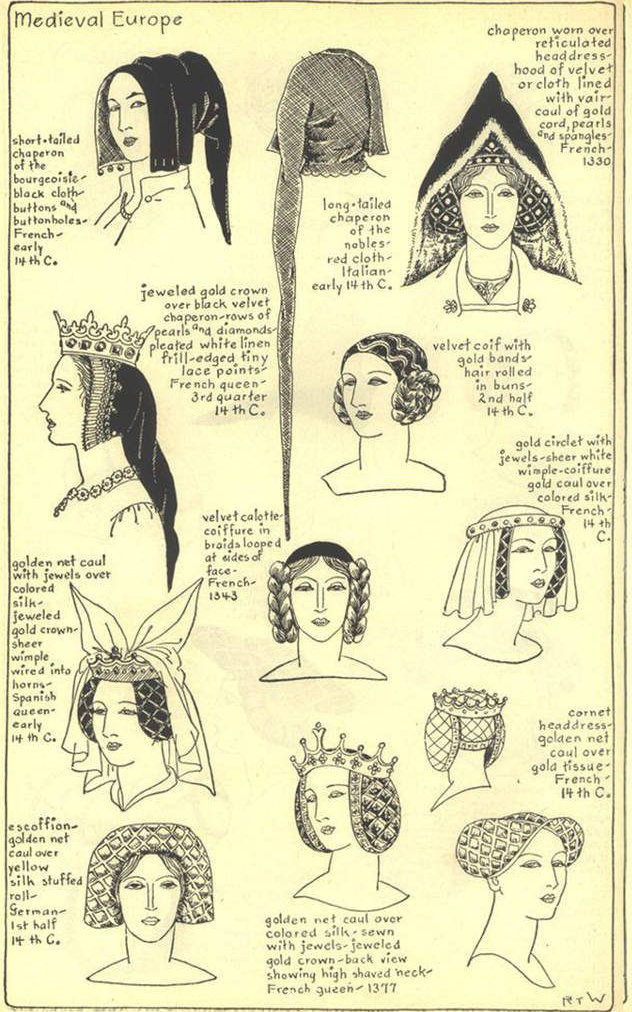 Medieval Europe
short-tailed
chaperon
of the
bourgeoisie-
black cloth-
buttons and
buttonholes-
French-
early
14th C.
long-tailed
chaperon
of the
nobles-
red cloth-
Italian-
early 14th C.
chaperon worn over
reticulated
headdress-
hood of velvet
or cloth lined
with vair-
caul of gold
cord, pearls
and spangles-
French-
1330
jeweled gold crown
over black velvet
chaperon-rows of
pearls and diamonds-
pleated white linen
frill-edged tiny
lace points-
French queen-
3rd quarter
14th C.
velvet coif with
gold bands-
hair rolled
in buns-
2nd half
14th C.
velvet calotte-
coiffure in
braids looped
at sides of
face-
French-
1343
gold circlet with
jewels-sheer white
wimple-coiffure
gold caul over
colored silk-
French-
14th
C.
golden net caul
with jewels over
colored
silk-
jeweled
gold crown-
sheer
wimple
wired into
horns-
Spanish
queen-
early
14th C.
cornet
headdress-
golden net
caul over
gold tissue-
French-
14th C.
escoffion-
golden net
caul over
yellow
silk stuffed
roll-
German-
1st half
14th C.
golden net caul over
colored silk-sewn
with jewels-jeweled
gold crown-back view
showing high shaved neck-
French queen-1377
RTW